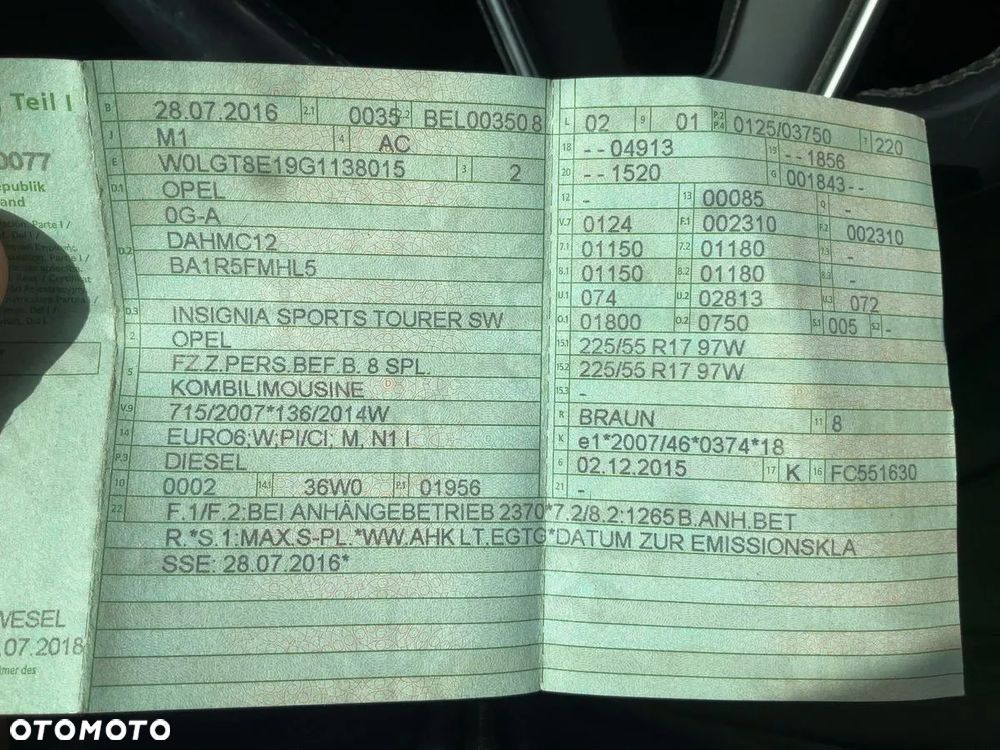 Teil I
0077
B 28.07.2016 2.1 0035 2.2 BEL003508
J M1 4 AC
E W0LGT8E19G1138015 3 2
D.1 OPEL
0G-A
D.2 DAHMC12
BA1R5FMHL5
D.3 INSIGNIA SPORTS TOURER SW
2 OPEL
5 FZ.Z.PERS.BEF.B. 8 SPL.
KOMBILIMOUSINE
V.9 715/2007*136/2014W
14 EURO6;W;PI/CI; M, N1 I
P.3 DIESEL
10 0002 14.1 36W0 P.1 01956
L 02 9 01 P.2 P.4 0125/03750 T 220
18 --04913 19 --1856
20 --1520 G 001843--
12 - 13 00085 Q -
V.7 0124 F.1 002310 F.2 002310
7.1 01150 7.2 01180 7.3 -
8.1 01150 8.2 01180 8.3 -
U.1 074 U.2 02813 U.3 072
O.1 01800 O.2 0750 S.1 005 S.2 -
15.1 225/55 R17 97W
15.2 225/55 R17 97W
15.3 -
R BRAUN 11 8
K e1*2007/46*0374*18
6 02.12.2015 17 K 16 FC551630
21 -
22 F.1/F.2:BEI ANHÄNGEBETRIEB 2370*7.2/8.2:1265 B.ANH.BET
R.*S.1:MAX.S-PL.*WW.AHK LT.EGTG*DATUM ZUR EMISSIONSKLA
SSE: 28.07.2016*
WESEL
.07.2018
OTOMOTO